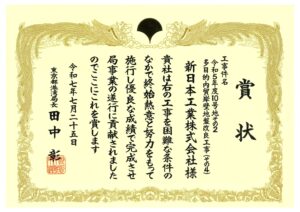 賞状
工事件名
令和5年度10号地その2
多目的内貿岸壁地盤改良工事(その4)
新日本工業株式会社様
貴社は右の工事を困難な条件の
なかで終始熱意と努力をもって
施行し優良な成績で完成させ
局事業の遂行に貢献されました
のでここにこれを賞します
令和七年七月二十五日
東京都港湾局長
田中彰